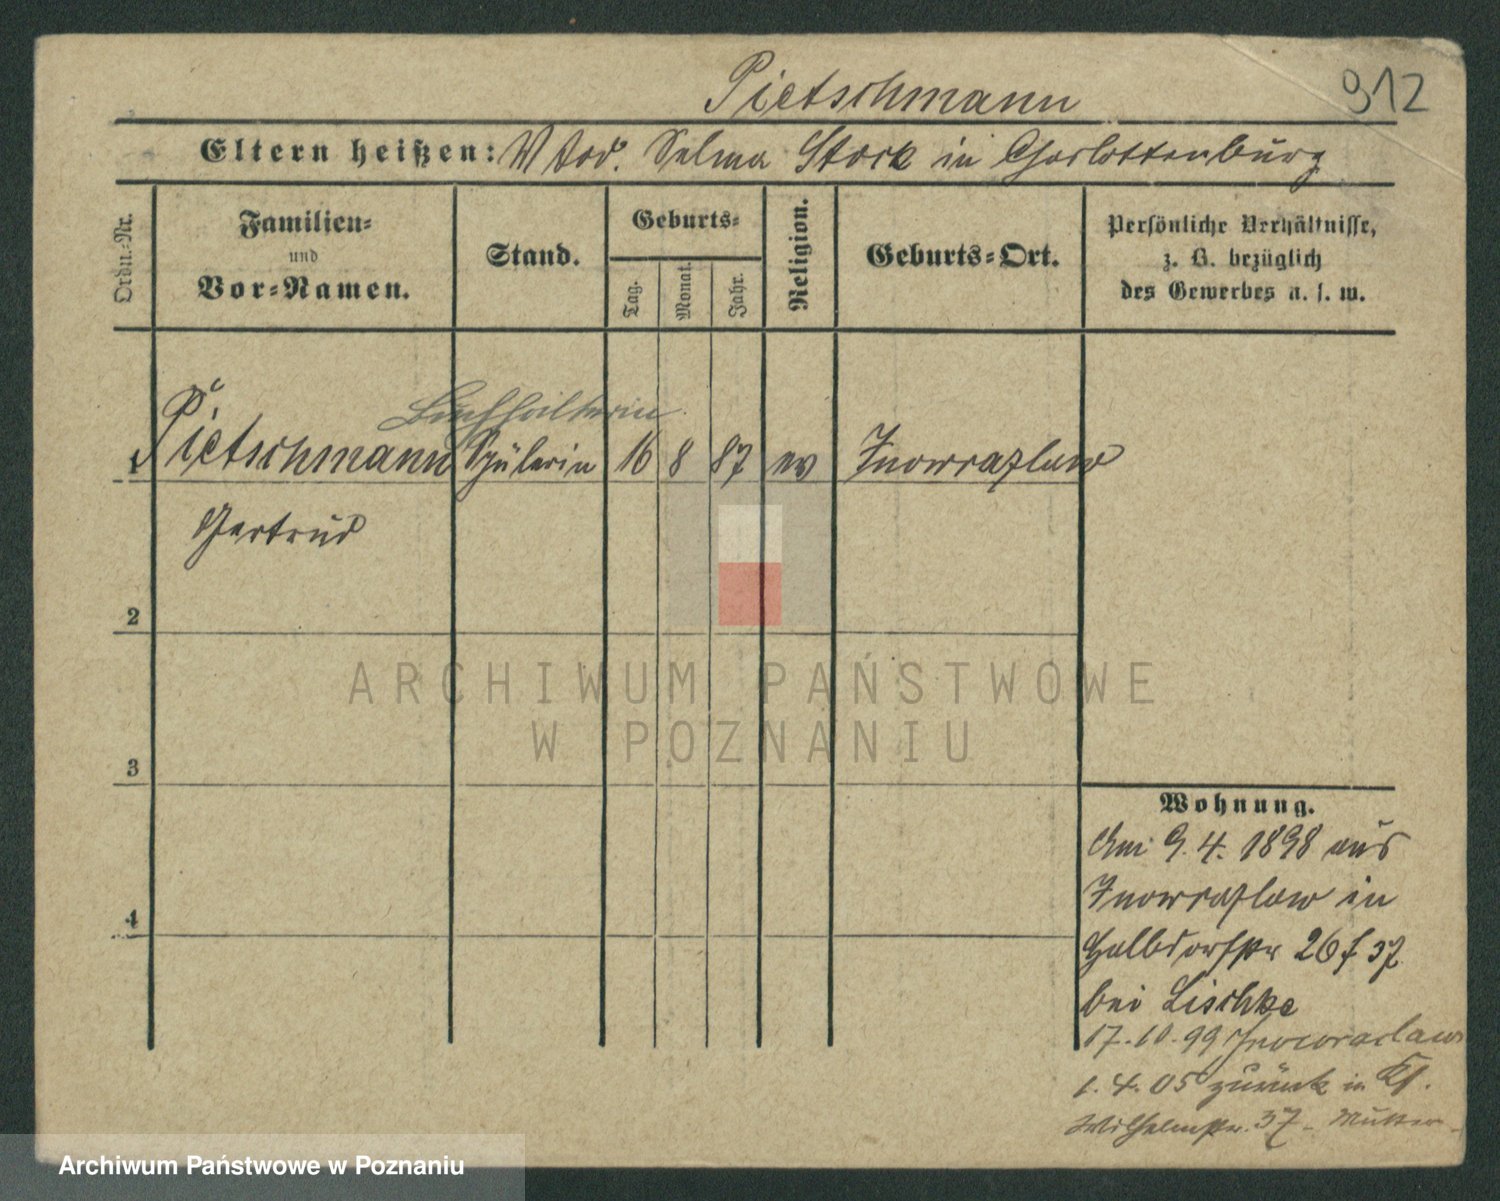 Pietschmann
912
Eltern heißen: V tod. Selma Stork in Charlottenburg
Ordn.-Nr.
Familien-
und
Vor-Namen.
Stand.
Geburts-
Tag.
Monat.
Jahr.
Religion.
Geburts-Ort.
Persönliche Verhältnisse,
z. B. bezüglich
des Gewerbes u. s. w.
Buchhalterin
1 Pietschmann Schülerin 16 8 87 ev Inowrazlaw
Gertrud
2
3
4
Wohnung.
Am 9.4.1898 aus
Inowrazlaw in
Halbdorfstr 26 f 37
bei Lischke
17.10.99 Inowraclaw
1.4.05 zurück in
Wilhelmstr. 37 - Mutter -
ARCHIWUM PAŃSTWOWE
W POZNANIU
Archiwum Państwowe w Poznaniu